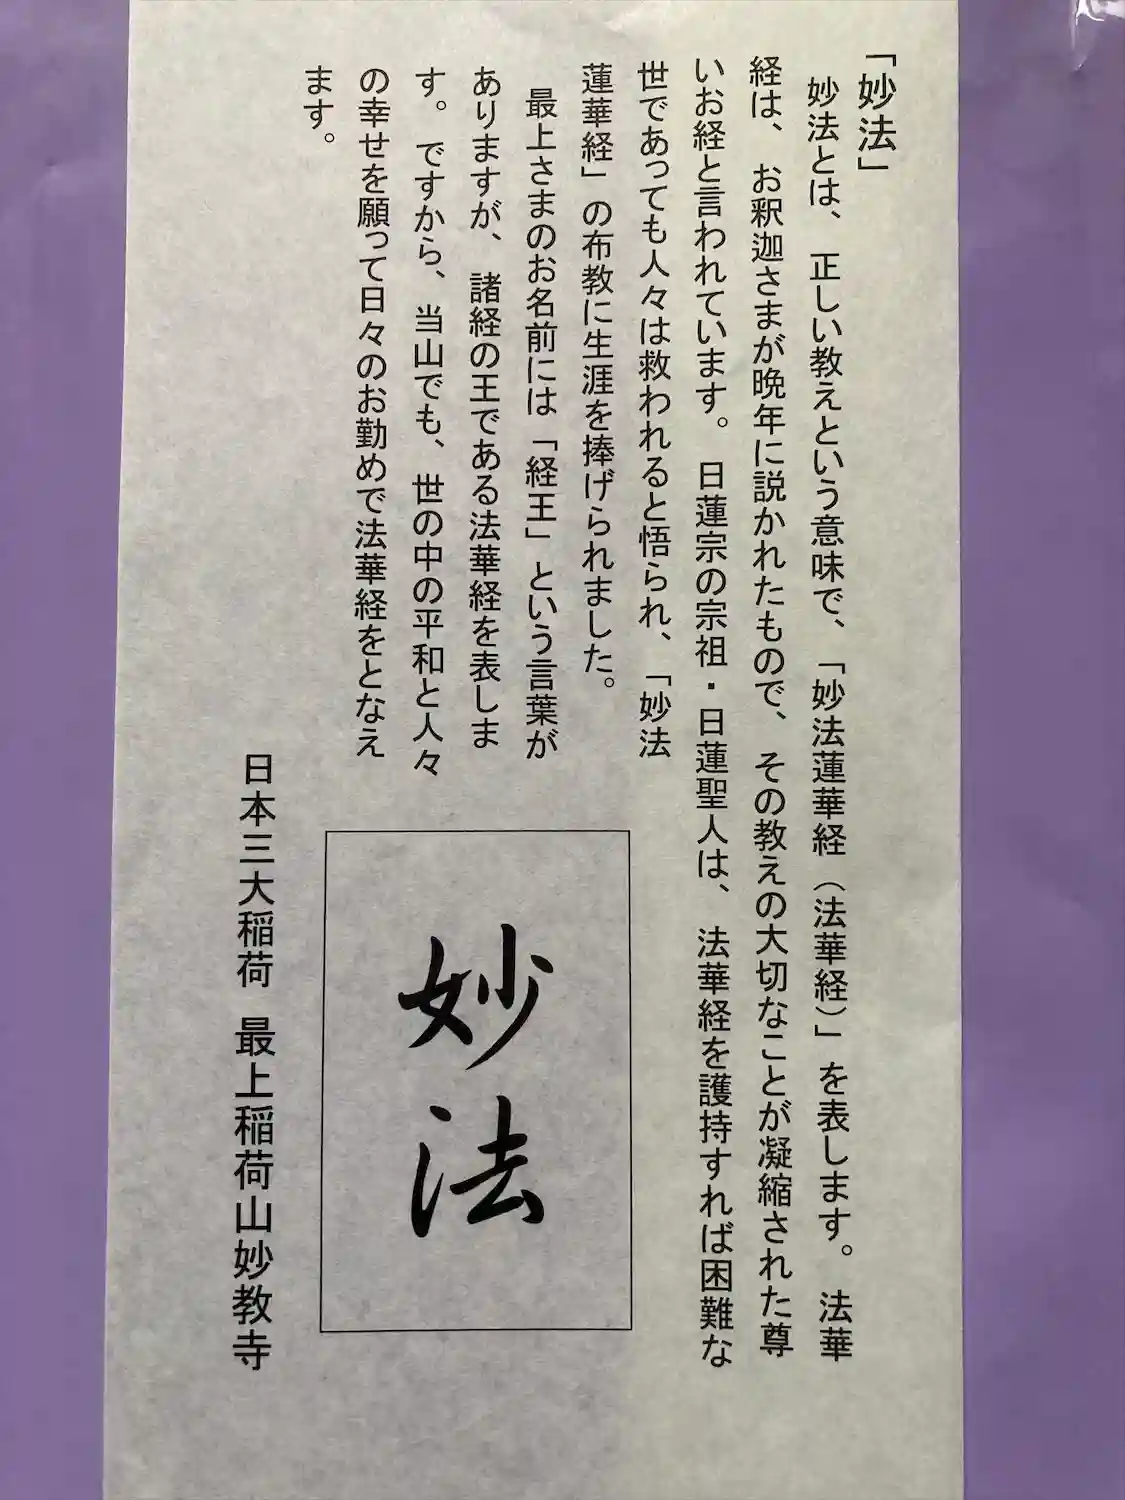 「妙法」
妙法とは、正しい教えという意味で、「妙法蓮華経（法華経）」を表します。法華
経は、お釈迦さまが晩年に説かれたもので、その教えの大切なことが凝縮された尊
いお経と言われています。日蓮宗の宗祖・日蓮聖人は、法華経を護持すれば困難な
世であっても人々は救われると悟られ、「妙法
蓮華経」の布教に生涯を捧げられました。
最上さまのお名前には「経王」という言葉が
ありますが、諸経の王である法華経を表しま
す。ですから、当山でも、世の中の平和と人々
の幸せを願って日々のお勤めで法華経をとなえ
ます。
妙法
日本三大稲荷 最上稲荷山妙教寺